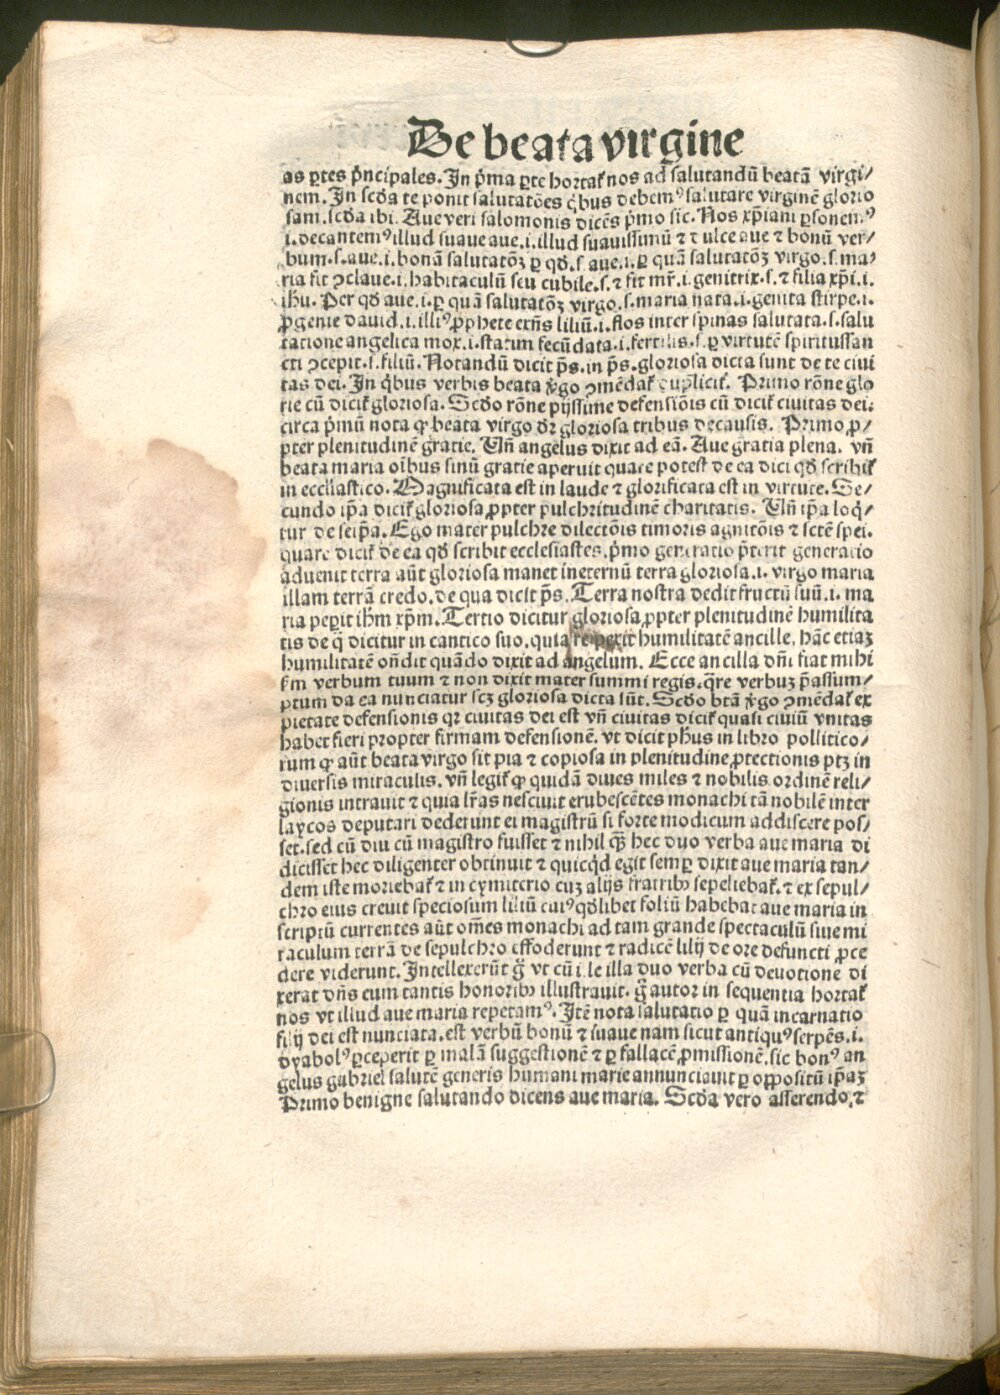 De beata virgine
as ꝑtes pͥncipales. In pͥma ꝑte hortat᷑ nos ad salutandū beatā virgi/
nem. In scd̄a te ponit salutatōes qͥbus debemꝰ salutare virginē glorio
sam. scd̄a ibi. Aue veri salomonis dicēs pͥmo sic. Nos xp̄iani ꝑsonemꝰ
.i. decantemꝰ illud suaue aue .i. illud suauissimū ⁊ dulce aue ⁊ bonū ver/
bum .s. aue .i. bonā salutatōꝫ ꝑ qd̄ .s. aue .i. ꝑ quā salutatōꝫ virgo .s. ma/
ria fit ꝯclaue .i. habitaculū seu cubile .s. ⁊ fit mr̄ .i. genitrix .s. ⁊ filia xp̄i .i.
ihū. Per qd̄ aue .i. ꝑ quā salutatōꝫ virgo .s. maria nata .i. genita stirpe .i.
ꝓgenie dauid .i. illiꝰ ꝓphete exn̄s liliū .i. flos inter spinas salutata .s. salu
tatione angelica mox .i. statim fecūdata .i. fertilis .s. ꝑ virtutē spiritussan
cti ꝯcepit .s. filiū. Notandū dicit ps̄. in ps̄. gloriosa dicta sunt de te ciui
tas dei. In qͥbus verbis beata ѷgo ꝯmēdat᷑ duplicit᷑. Primo rōne glo
rie cū dicit᷑ gloriosa. Scd̄o rōne pijssime defensiōis cū dicit᷑ ciuitas dei.
circa pͥmū nota ꝙ beata virgo dr̄ gloriosa tribus de causis. Primo ꝓ/
pter plenitudinē gratie. Vn̄ angelus dixit ad eā. Aue gratia plena. vn̄
beata maria oībus sinū gratie aperuit quare potest de ea dici qd̄ scribit᷑
in eccl̄iastico. Magnificata est in laude ⁊ glorificata est in virtute. Se/
cundo ip̄a dicit᷑ gloriosa ꝓpter pulchritudinē charitatis. Vn̄ ip̄a loqͥ/
tur de seip̄a. Ego mater pulchre dilectōis timoris agnitōis ⁊ sctē spei.
quare dicit᷑ de ea qd̄ scribit ecclesiastes. pͥmo generatio p̄terit generatio
aduenit terra aūt gloriosa manet in eternū terra gloriosa .i. virgo maria
illam terrā credo. de qua dicit ps̄. Terra nostra dedit fructū suū .i. ma
ria peꝑit ihm̄ xp̄m. Tertio dicitur gloriosa ꝓpter plenitudinē humilita
tis de q̄ dicitur in cantico suo. quia respexit humilitatē ancille. hāc etiaꝫ
humilitatē on̄dit quādo dixit ad angelum. Ecce ancilla dn̄i fiat mihi
ẜm verbum tuum ⁊ non dixit mater summi regis. qͣre verbuꝫ p̄assum/
ptum da ea nunciatur scꝫ gloriosa dicta sūt. Scd̄o btā ѷgo ꝯmēdat᷑ ex
pietate defensionis qꝛ ciuitas dei est vn̄ ciuitas dicit᷑ quasi ciuiū vnitas
habet fieri propter firmam defensionē. vt dicit ph̄us in libro pollitico/
rum ꝙ aūt beata virgo sit pia ⁊ copiosa in plenitudine ꝓtectionis ptꝫ in
diuersis miraculis. vn̄ legit᷑ ꝙ quidā diues miles ⁊ nobilis ordinē reli/
gionis intrauit ⁊ quia lr̄as nesciuit erubescētes monachi tā nobilē inter
laycos deputari dederunt ei magistrū si forte modicum addiscere pos/
set. sed cū diu cū magistro fuisset ⁊ nihil qͣꝫ hec duo verba aue maria di
dicisset hec diligenter obtinuit ⁊ quicqͥd egit semꝑ dixit aue maria tan/
dem iste moriebat᷑ ⁊ in cymiterio cuꝫ alijs fratribꝫ sepeliebat᷑. ⁊ ex sepul/
chro eius creuit speciosum liliū cuiꝰ qd̄libet foliū habebat aue maria in
scriptū currentes aūt om̄es monachi ad tam grande spectaculū siue mi
raculum terrā de sepulchro effoderunt ⁊ radicē lilij de ore defuncti ꝓce
dere viderunt. Intellexerūt g̊ vt cū ille illa duo verba cū deuotione di
xerat dn̄s eum tantis honoribꝫ illustrauit. g̊ autor in sequentia hortat᷑
nos vt illud aue maria repetamꝰ. Itē nota salutatio ꝑ quā incarnatio
filij dei est nunciata. est verbū bonū ⁊ suaue nam sicut antiquꝰ serpēs .i.
dyabolꝰ ꝑceperit ꝑ malā suggestionē ⁊ ꝑ fallacē ꝓmissionē. sic bonꝰ an
gelus gabriel salutē generis humani marie annunciauit ꝑ oppositū ip̄aꝫ
Primo benigne salutando dicens aue maria. Scd̄a vero asserendo. ⁊